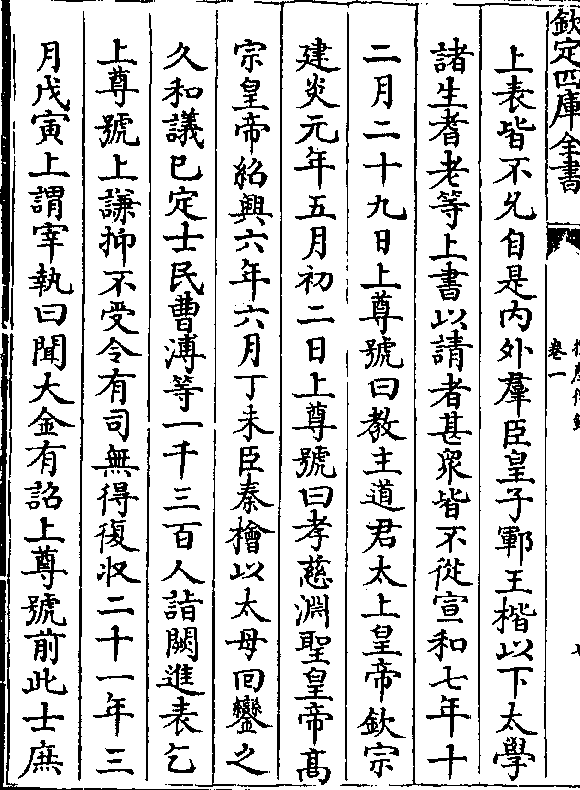 欽定四庫全書
卷一
上表皆不允自是内外羣臣皇子鄆王楷以下太學
諸生耆老等上書以請者甚衆皆不從宣和七年十
二月二十九日上尊號曰教主道君太上皇帝欽宗
建炎元年五月初二日上尊號曰孝慈淵聖皇帝髙
宗皇帝紹興六年六月丁未臣秦檜以太母回鑾之
久和議已定士民曹溥等一千三百人詣闕進表乞
上尊號上謙抑不受令有司無得復収二十一年三
月戊寅上謂宰執曰聞大金有詔上尊號前此士庶